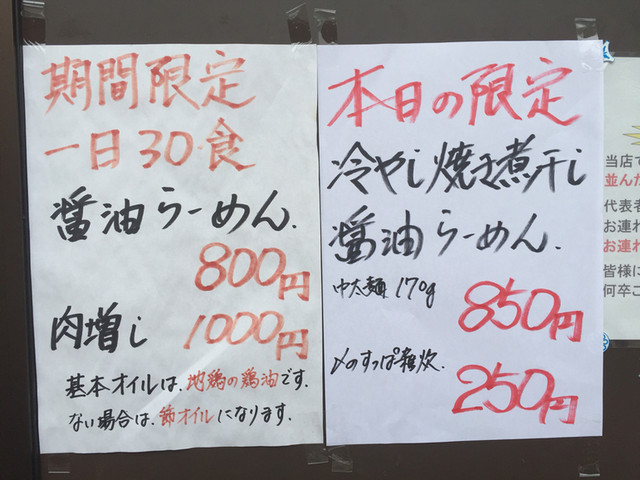 期間限定
一日30食
醤油らーめん.
800円
肉増し 1000円
基本オイルは、地鶏の鶏油です.
ない場合は、節オイルになります.
本日の限定
冷やし焼き煮干し
醤油らーめん.
中太麺 170g 850円
〆のすっぱ雑炊.
250円
当店で
並んた
代表者
お連れ
お連れ
皆様に
何卒ご